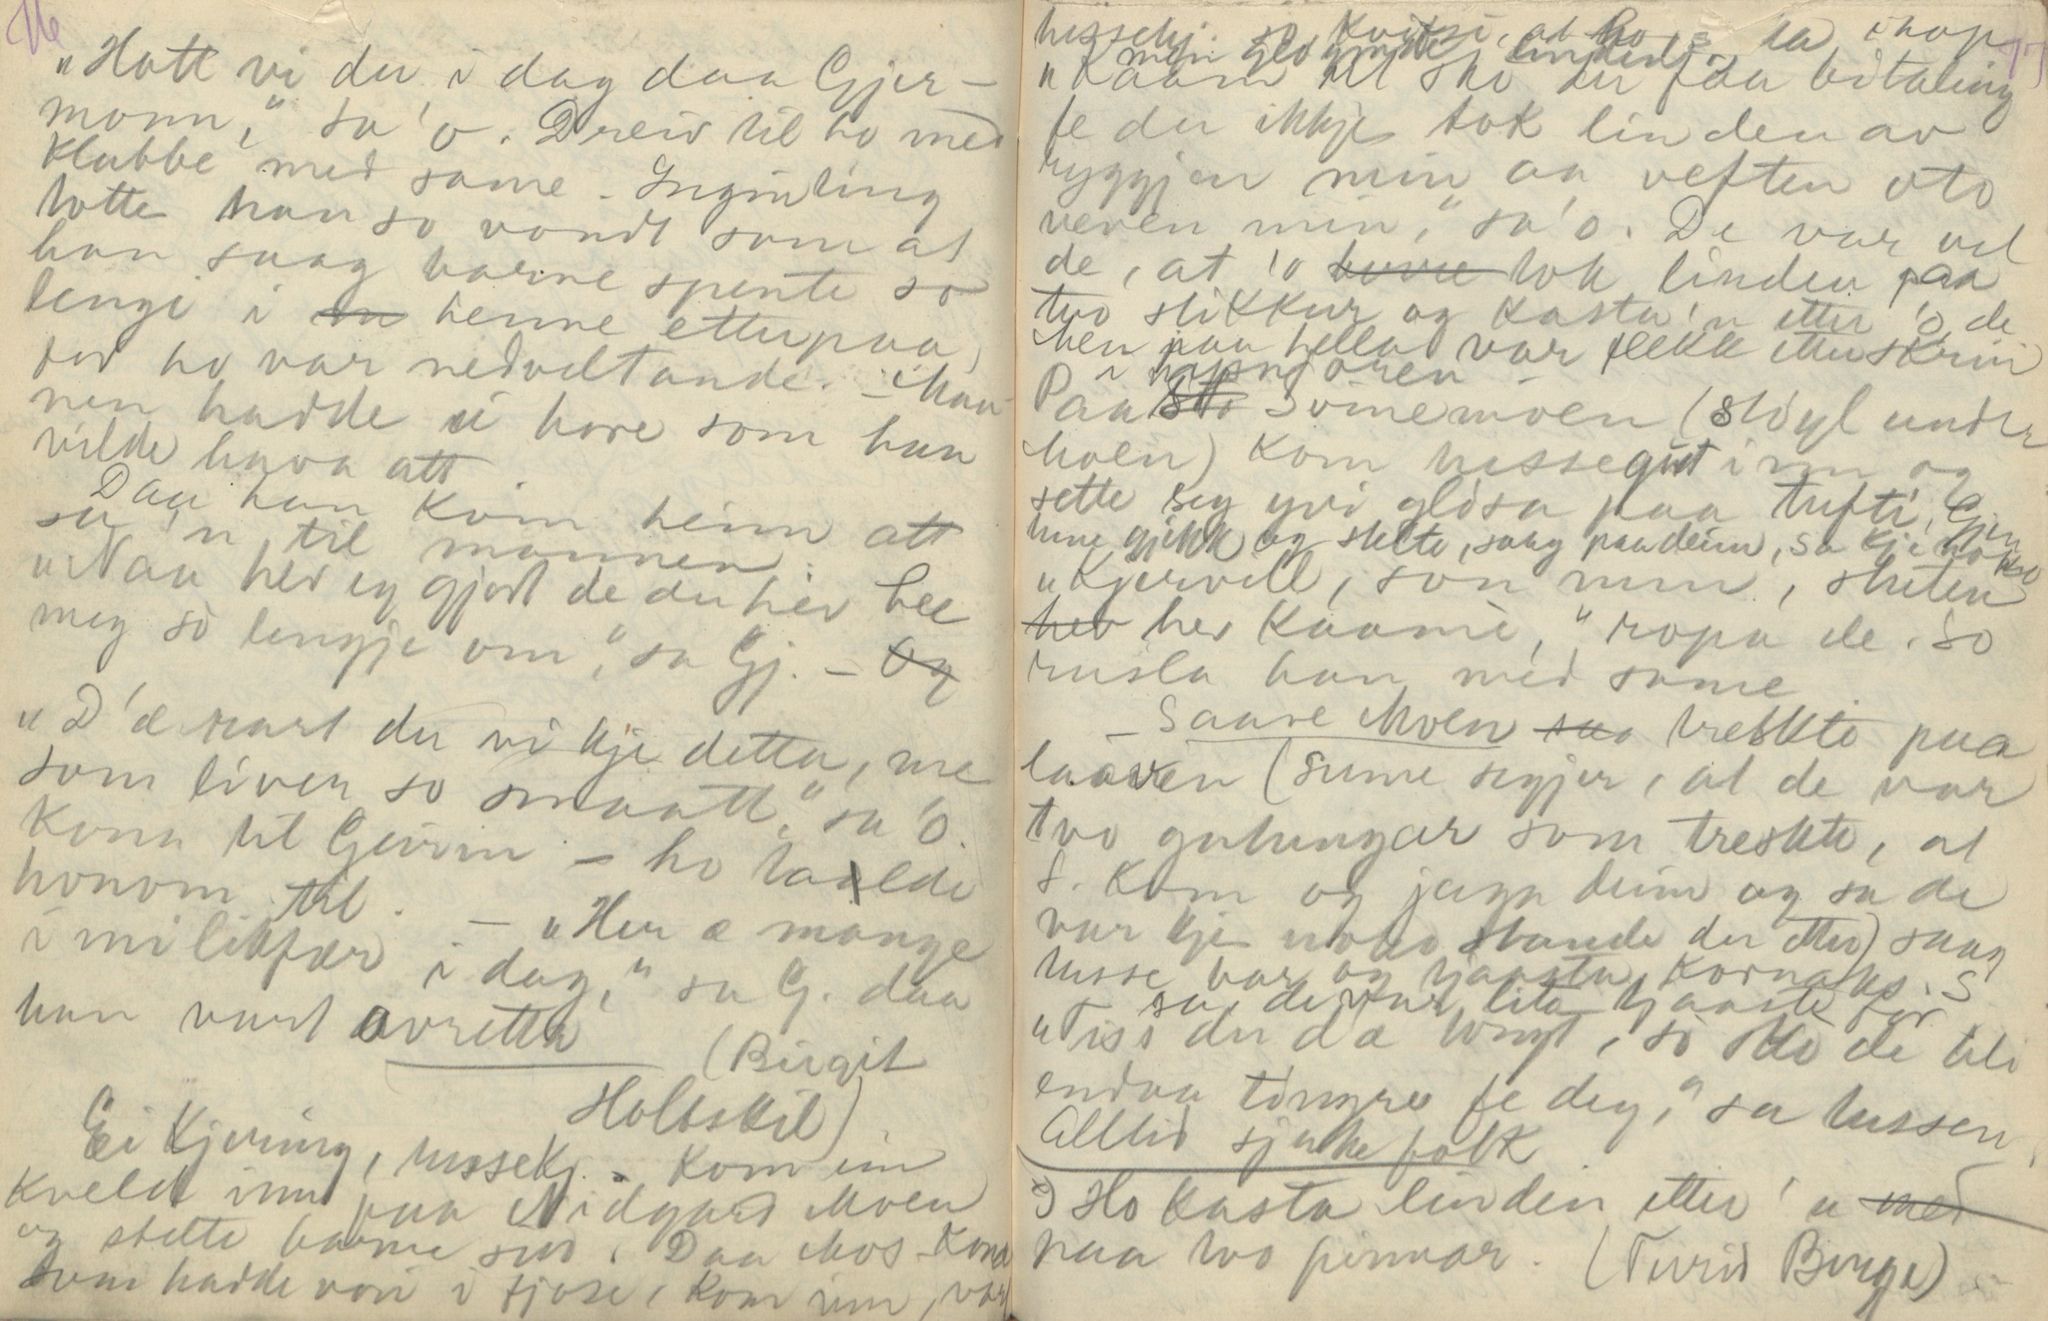 "Hott vi du i dag daa Gjer-
monn," sa 'o. Dreiv til ho med
klubbe med same. Ingenting
totte han so vondt som at
han saag barne spente so
lengi i henne etterpaa,
ho var nedveltande. - Man-
nen hadde ei hore som han
vilde hava att
Daa han kom heim att
sa 'n til mannen:
"Naa hev eg gjort de du hev bee
meg so lengje om," sa Gj. - Og
"D'æ rart du vi kje detta, me
som liver so smaatt," sa 'o
Kona til - ho talde
honom til. - "Her æ mange
i mi likfær i dag," sa G. daa
han vart avretta
(Birgit
Holtskil)
Ei kjering, tussekj. kom ein
kveld inn paa Midgard Moen
og stelte barne sine. Daa Mos-Kona
som hadde vori i fjose, kom inn, var
tussekj. so at ho ta ihop
"Kaam til sko du faa bitaling
fe du ikkje tok linden av
ryggjen min aa veften oto
veven min," sa 'o. De var vel
de, at 'o tok linden paa
two stikkur og kasta 'n etter 'o, de
hen paa hella var flekk etter
Paa Sto Moen (Støyl under
Moen) kom tussegut inn og
sette seg yvi glosa paa tufti,
gjekk og stelte, saag paa deim, sa kje noko
"Kjervell, son min, stuten
hev hev kaame," ropa de. So
rusla han med same
- Saave Moen treskte paa
laaven (Sume segjer, at de var
two gutungar som treskte, at
S. kom og jaga deim og sa de
var kje noko stande der etter) saag
tusse bar og kornaks. S
sa, de var lita for
"Tiss du d'æ tongt, so sko de bli
endaa tongre fe deg," sa tussen.
Alltid sjuke folk
Ho kasta linden etter 'n med
paa two pinnar. (Turid Berge)